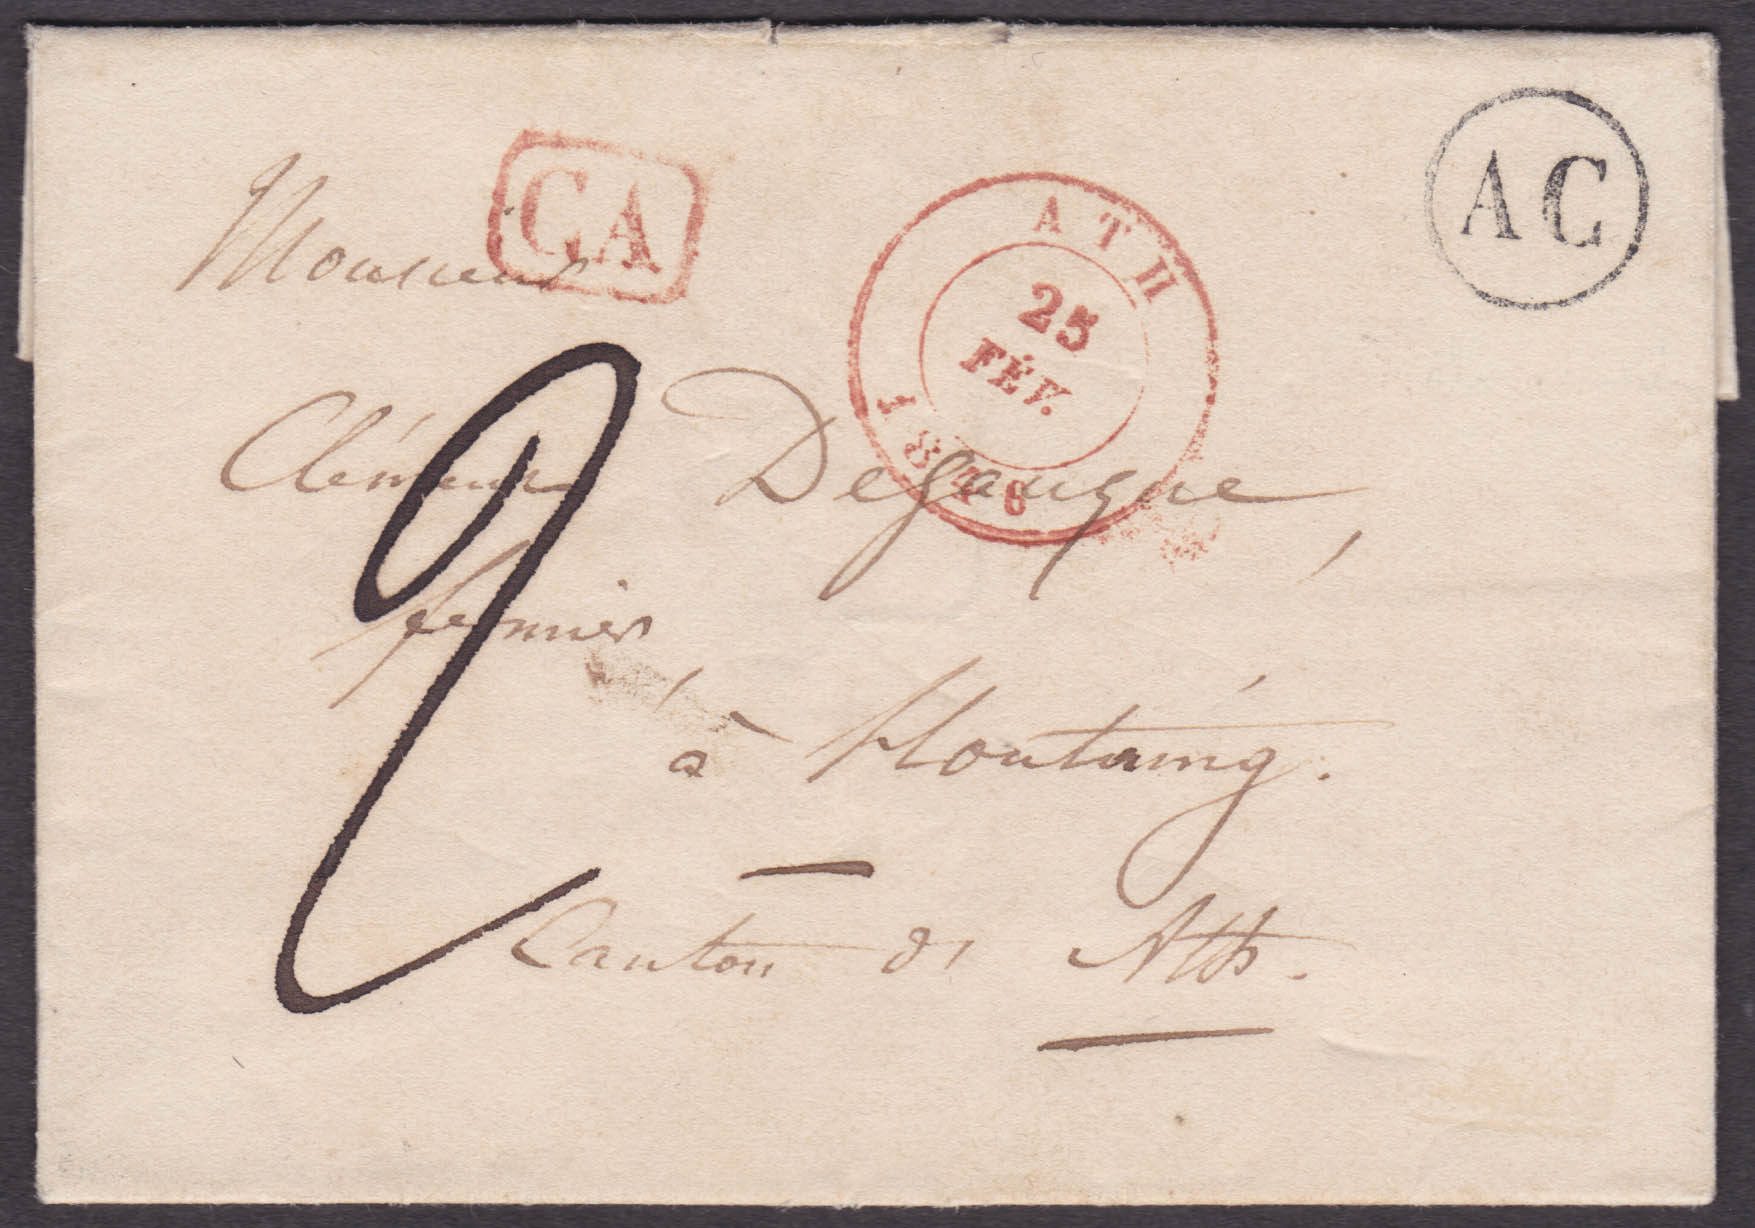 CA
ATH
25
FÉV.
1846
AC
Monsieur
Clément Degauque,
fermier
2
à Houtaing.
Canton d' Ath.